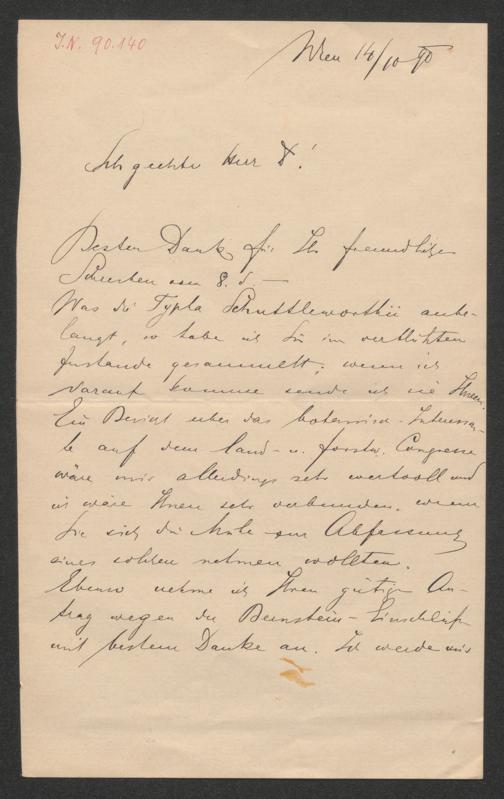 J.N. 90.140
Wien 14/10 90
Sehr geehrter Herr Dr!
Besten Dank für Ihr freundliches
Schreiben vom 8. d. —
Was die Typha Schuttleworthii anbe-
langt, so habe ich sie im verblühten
Zustande gesammelt; wenn ich
darauf komme sende ich sie Ihnen.
Ein Bericht über das botanisch-Interessan-
te auf dem land- u. forstw. Congresse
wäre mir allerdings sehr wertvoll und
ich wäre Ihnen sehr verbunden, wenn
Sie sich die Mühe zur Abfassung
eines solchen nehmen wollten.
Ebenso nehme ich Ihren gütigen An-
trag wegen der Bernstein-Einschlüsse
mit bestem Danke an. Ich werde mir